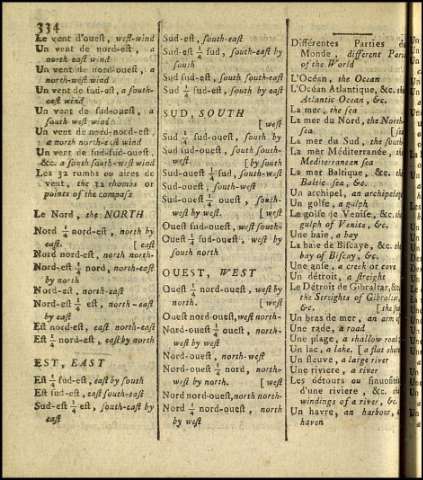 334
Le vent d'ouest, west-wind
Un vent de nord-est, a
north-east wind
Un vent de nord-ouest, a
north-west wind
Un vent de sud-est, a south-
east wind
Un vent de sud-ouest, a
south west wind
Un vent de nord-nord-est,
a north north-east wind
Un vent de sud-sud-ouest,
&c. a south south-west wind
Les 32 rumbs ou aires de
vent, the 32 rhombs or
points of the compass
Le Nord, the NORTH
Nord ¼ nord-est, north by
east. [east
Nord nord-est, north north-
Nord-est ¼ nord, north-east
by north
Nord-est, north-east
Nord-est ¼ est, north-east
by east
Est nord-est, east north-east
Est ¼ nord-est, east by north
EST, EAST
Est ¼ sud-est, east by south
Est sud-est, east south-east
Sud-est ¼ est, south-east by
east
Sud-est, south-east
Sud-est ¼ sud, south-east by
south
Sud sud-est, south south-east
Sud ¼ sud-est, south by east
SUD, SOUTH
[west
Sud ¼ sud-ouest, south by
Sud sud-ouest, south south-
west [by south
Sud-ouest ¼ sud, south-west
Sud-ouest, south-west
Sud-ouest ¼ ouest, south-
west by west. [west
Ouest sud-ouest, west south-
Ouest ¼ sud-ouest, west by
south north
OUEST, WEST
Ouest ¼ nord-ouest, west by
north. [west
Ouest nord-ouest, west north-
Nord-ouest ¼ ouest, north-
west by west
Nord-ouest, north-west
Nord-ouest ¼ nord, north-
west by north. [west
Nord nord-ouest, north north-
Nord ¼ nord-ouest, north
by west
Différentes Parties
Monde, different
of the World
L'Océan, the Ocean
L'Océan Atlantique, &c. the
Atlantic Ocean, &c.
La mer, the sea
La mer du Nord, the North
sea
La mer du Sud, the south
La mer Méditerranée, the
Mediterranean sea
La mer Baltique, &c. the
Baltic-sea, &c.
Un archipel, an
Un golfe, a gulph
Le golfe de Venise, &c. the
gulph of Venice, &c.
Une baie, a bay
La baie de Biscaye, &c. the
bay of Biscay, &c.
Une anse, a creek or cove
Un détroit, a streight
Le Détroit de Gibraltar, &c.
the Streights of
Un bras de mer, an arm
Une rade, a road
Une plage, a shallow
Un lac, a lake. [a flat
Un fleuve, a large river
Une riviere, a river
Les détours ou
d'une riviere, &c.
windings of a river, &c.
Un havre, an harbour,
haven